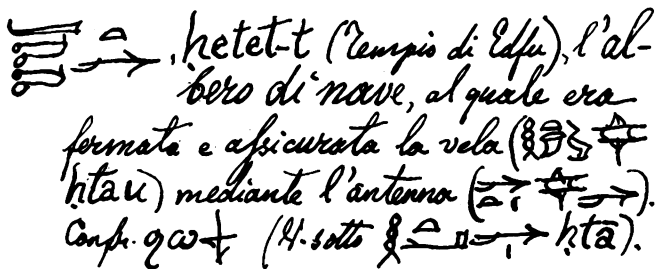 , hetet-t (Tempio di Edfu), l'al-
bero di nave, al quale era
fermata e assicurata la vela (
ḥtau) mediante l'antenna ( ).
Confr. (V. sotto ḥtā).